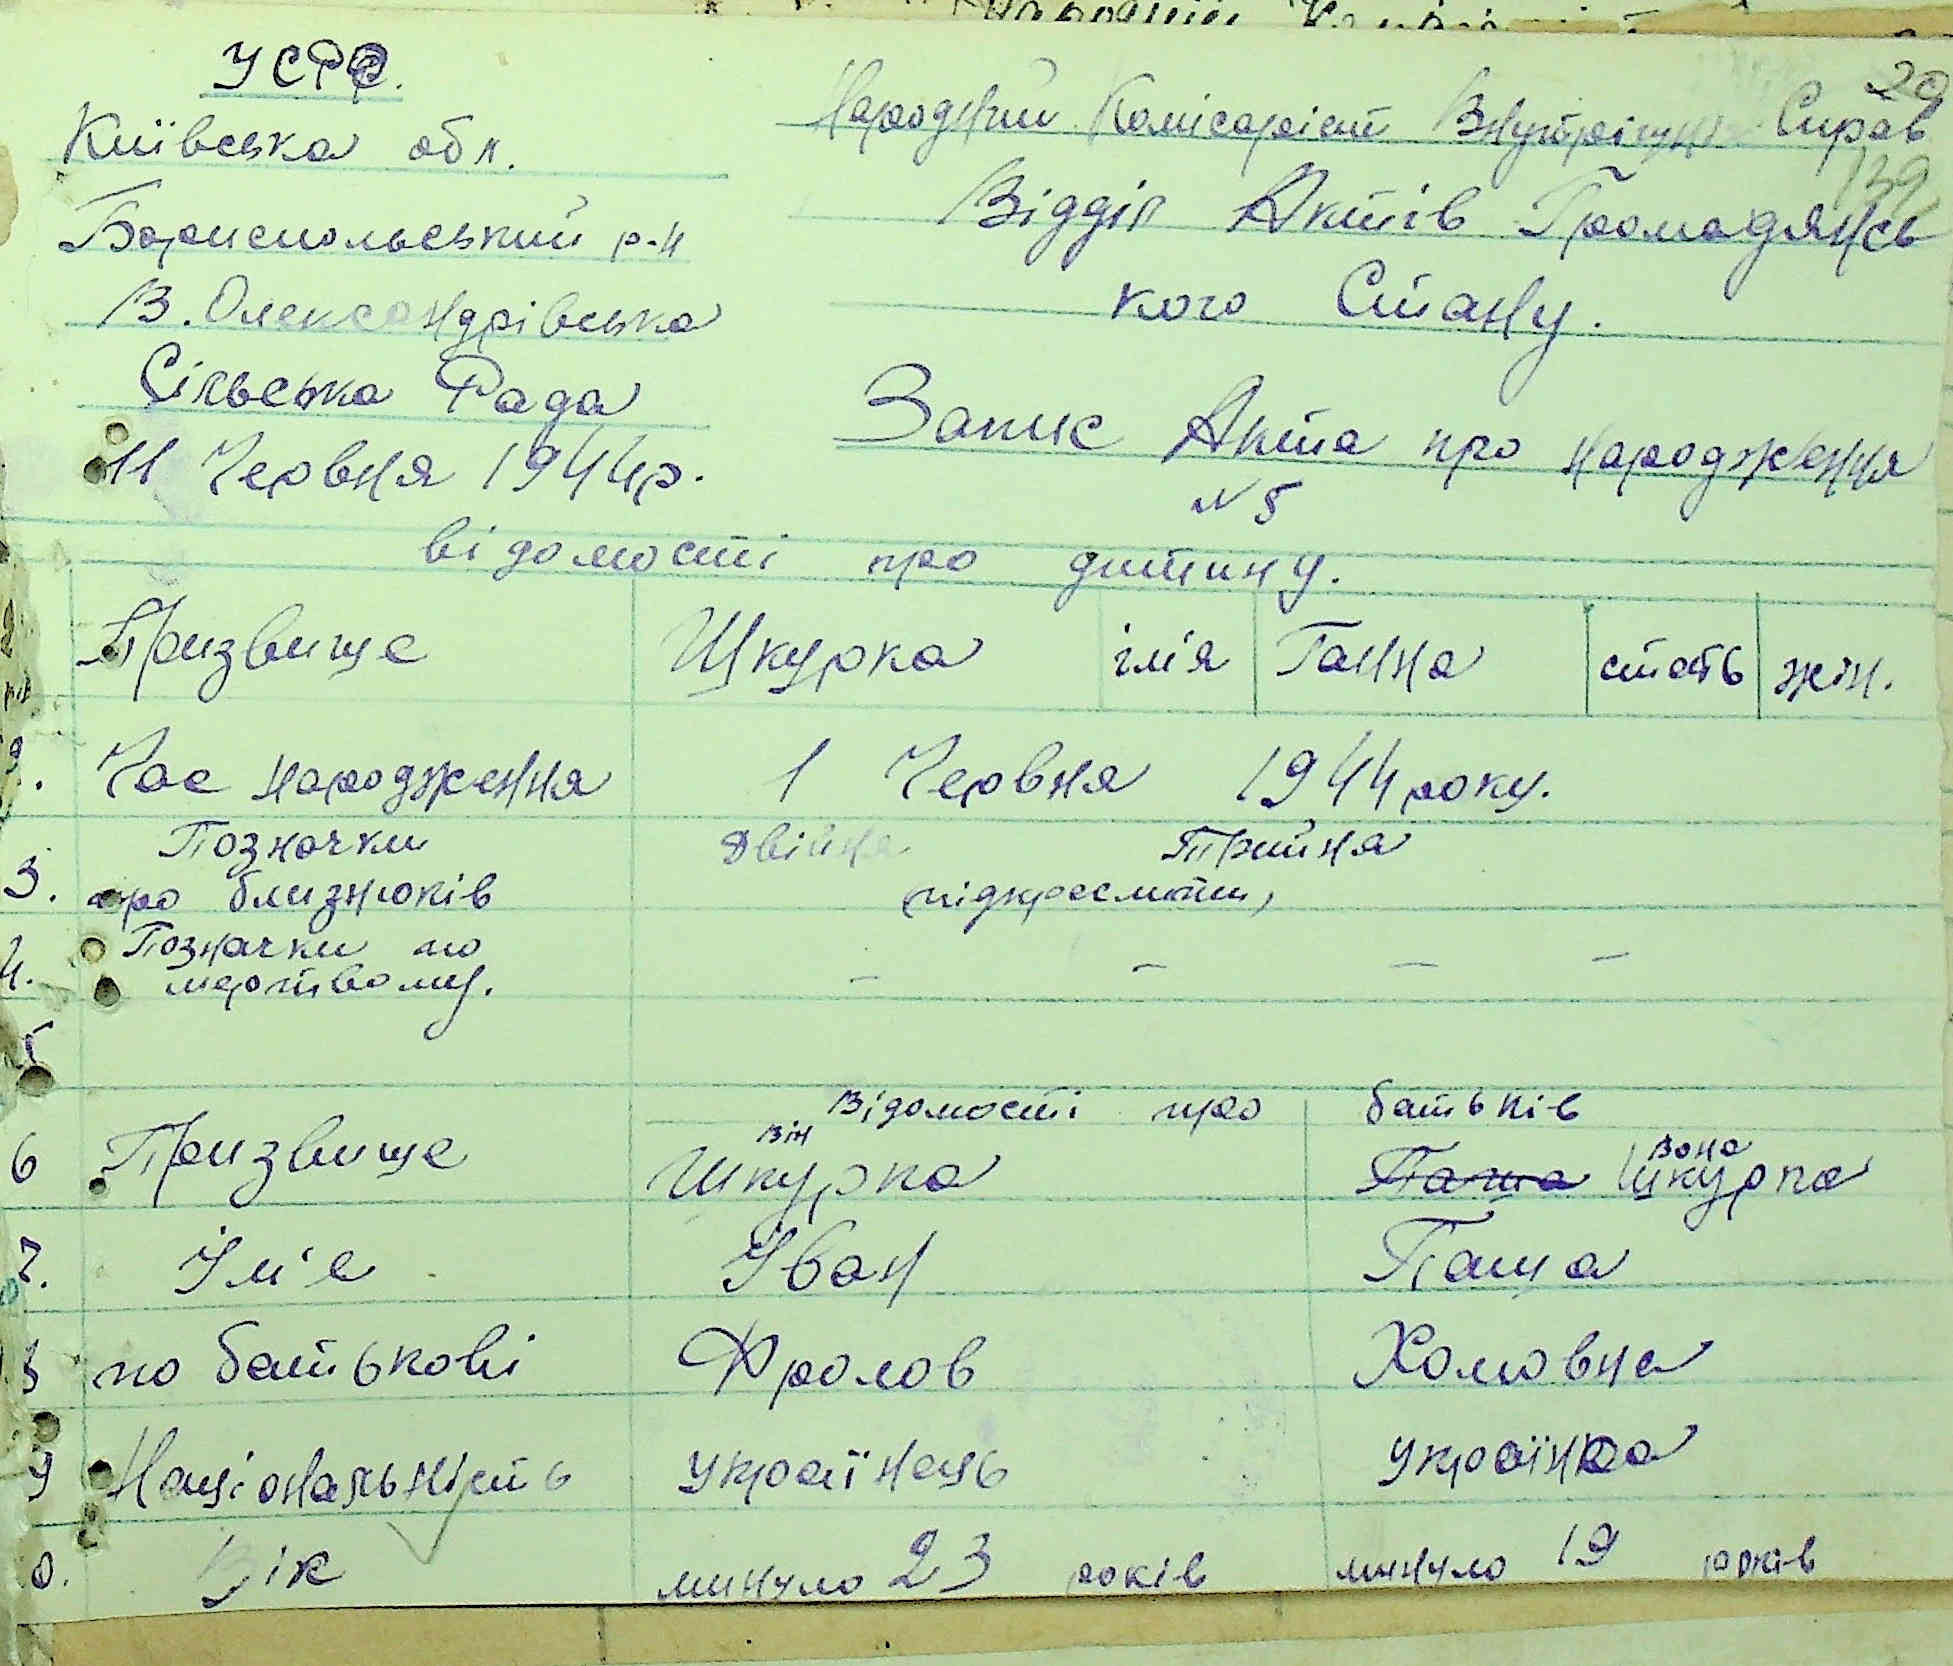 УСРР.
Київська обл.
Бориспольський р-н
В. Олександрівська
Сільська Рада
11 Червня 1944р.
20
Народний Комісаріат Внутрішніх Справ
139
Відділ Актів Громадянсь
кого Стану.
Запис Акта про народження
N 5
відомості про дитину.
Призвище Шкурка ім'я Ганна стать жін.
2. Час народження 1 Червня 1944 року.
3. Позначки про близнюків двійня Трийня
(підкреслити)
4. Позначки по мертвому. – – – –
5
Відомості про батьків
він вона
6 Призвище Шкурка Паша Шкурка
7. Ім'я Іван Паша
8 по батькові Фролов Хомовна
9 Національність українець українка
0. Вік минуло 23 років минуло 19 років